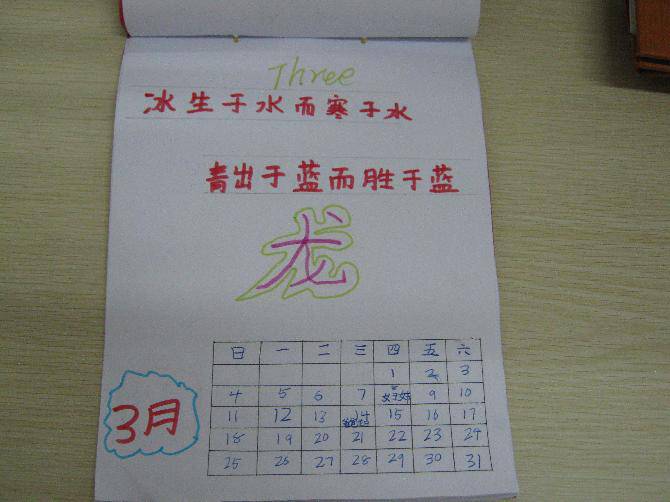 Three
冰生于水而寒于水
青出于蓝而胜于蓝
龙
3月
日 一 二 三 四 五 六
1 2 3
4 5 6 7 9 10
11 12 13 14 15 16 17
18 19 20 21 22 23 24
25 26 27 28 29 30 31